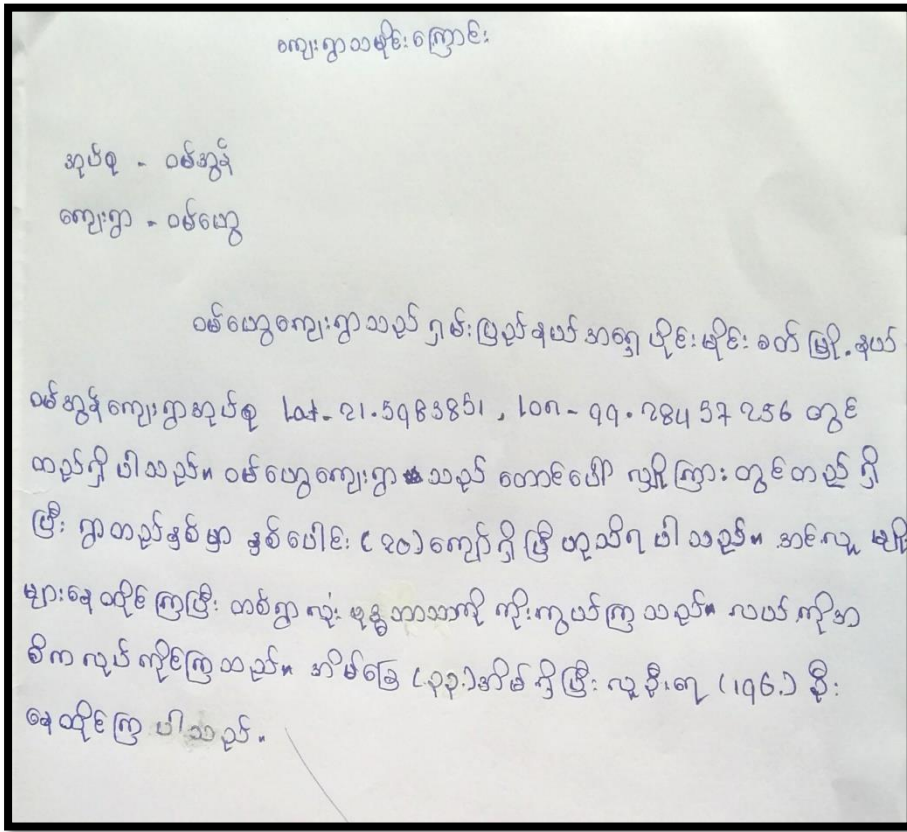 ကျေးရွာသမိုင်းကြောင်း
အုပ်စု - ဝမ်အွန်
ကျေးရွာ - ဝမ်ဟွေ
ဝမ်ဟွေကျေးရွာသည် ရှမ်းပြည်နယ် အရှေ့ပိုင်း မိုင်းခတ်မြို့နယ်
ဝမ်အွန်ကျေးရွာအုပ်စု lat-21.5983851, lon-99.28457256 တွင်
တည်ရှိပါသည်။ ဝမ်ဟွေကျေးရွာသည် တောင်ပေါ် လျှိုကြားတွင်တည်ရှိ
ပြီး ရွာတည်နှစ်မှာ နှစ်ပေါင်း (၃၀)ကျော်ရှိပြီ ဟုသိရပါသည်။ အင်လူမျိုး
များနေထိုင်ကြပြီး တစ်ရွာလုံး ဗုဒ္ဓဘာသာကို ကိုးကွယ်ကြသည်။ လယ်ကိုအ
ဓိကလုပ်ကိုင်ကြသည်။ အိမ်ခြေ (၃၃)အိမ်ရှိပြီး လူဦးရေ (196.) ဦး
နေထိုင်ကြပါသည်။